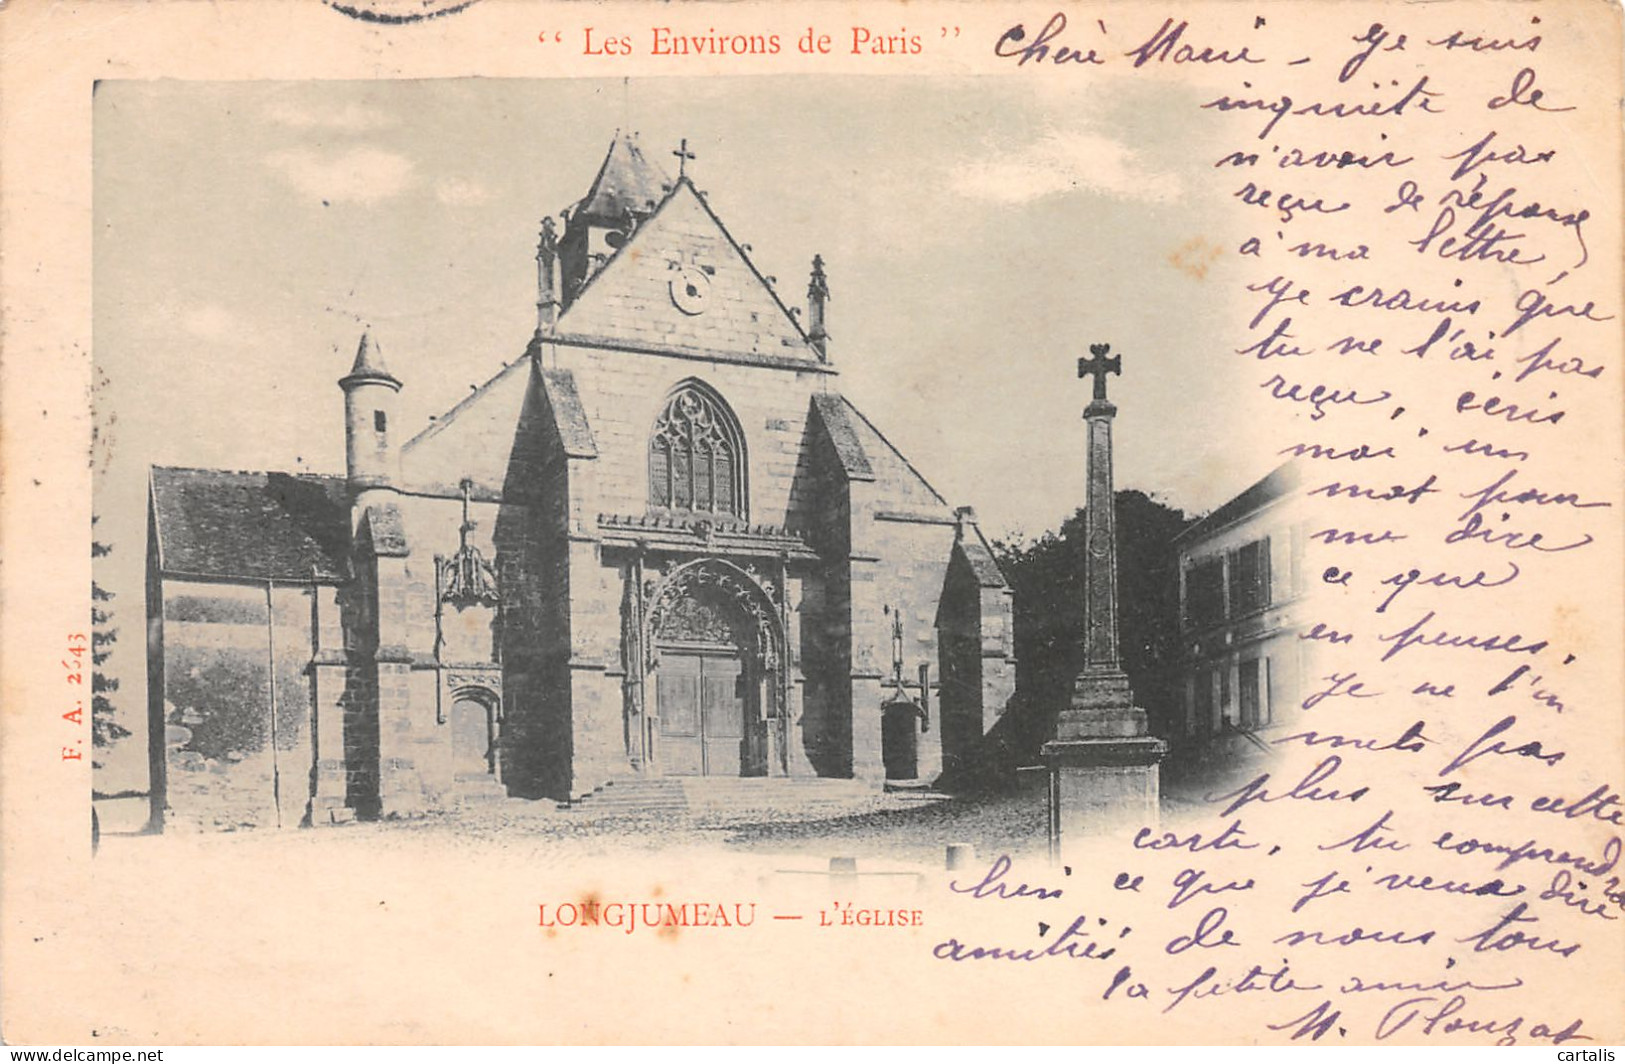 “ Les Environs de Paris ”
Chère Marie - Je suis
inquiète de
n'avoir pas
reçu de réponse
à ma lettre,
Je crains que
tu ne l'ai pas
reçu, écris
moi un
mot pour
me dire
ce que
en penses,
Je ne t'en
mets pas
plus sur cette
carte, tu comprendra
bien ce que je veux dire
amitiés de nous tous
ta petite amie
M.
F. A. 2643
LONGJUMEAU — L'ÉGLISE
cartalis
www.delcampe.net